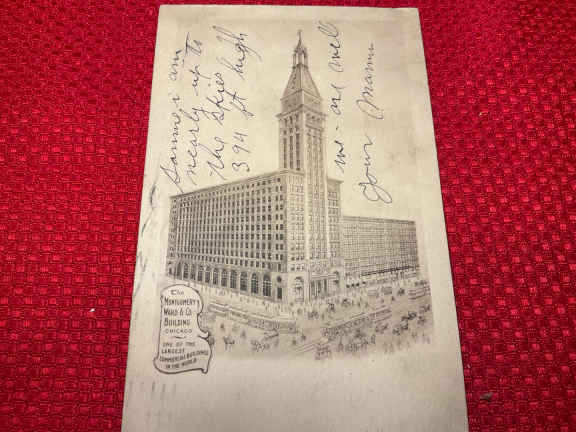 Sammie i am
nearly up to
the skies
394 ft high
we - are well
your Mamma
The
MONTGOMERY
WARD & CO.
BUILDING
CHICAGO
ONE OF THE
LARGEST
COMMERCIAL BUILDINGS
IN THE WORLD